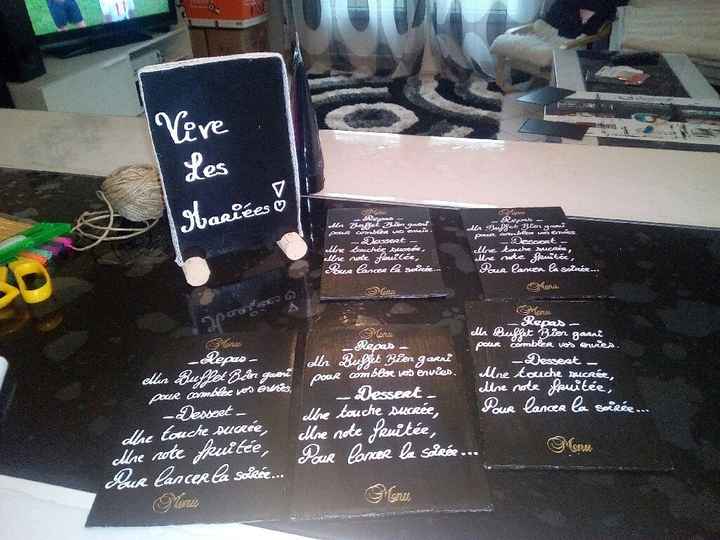 Vive
Les
Mariées!
Menu
– Repas –
Un Buffet Bien garni
pour combler vos envies.
– Dessert –
Une touche sucrée,
Une note fruitée,
Pour lancer la soirée...
Menu
Menu
– Repas –
Un Buffet Bien garni
pour combler vos envies
– Dessert –
Une touche sucrée,
Une note fruitée,
Pour lancer la soirée...
Menu
Menu
– Repas –
Un Buffet Bien garni
pour combler vos envies.
– Dessert –
Une touche sucrée,
Une note fruitée,
Pour lancer la soirée...
Menu
Menu
– Repas –
Un Buffet Bien garni
pour combler vos envies.
– Dessert –
Une touche sucrée,
Une note fruitée,
Pour lancer la soirée...
Menu
Menu
– Repas –
Un Buffet Bien garni
pour combler vos envies.
– Dessert –
Une touche sucrée,
Une note fruitée,
Pour lancer la soirée...
Menu